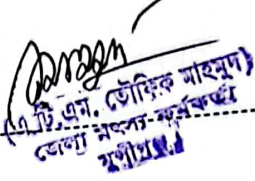 (এ.টি.এন. তৌফিক মাহমুদ)
জেলা মৎস্য কর্মকর্তা